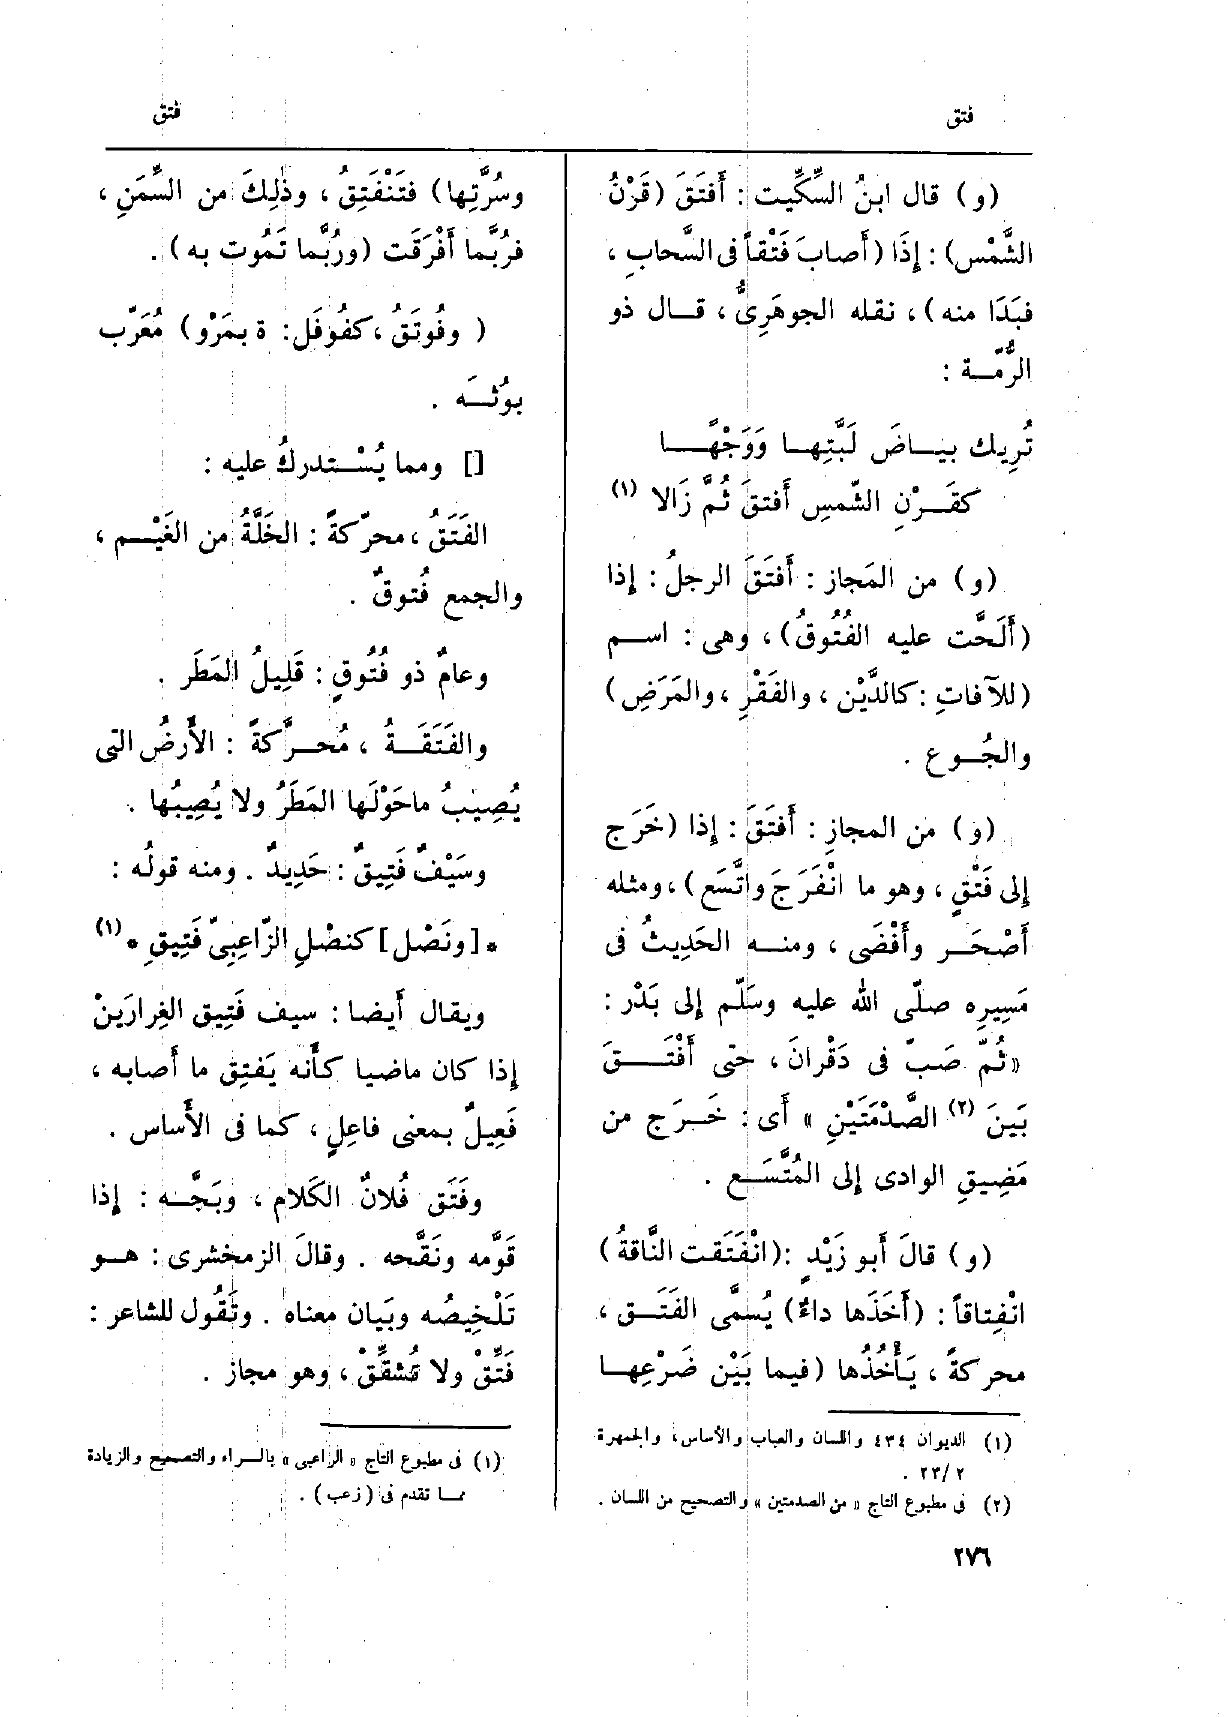 فتق
فتق
(و) قال ابنُ السِّكِّيت : أَفتَقَ (قَرْنُ
الشَّمْس) : إِذَا (أَصابَ فَتْقاً فى السَّحابِ ،
فبَدَا منه) ، نقله الجوهَرِىُّ ، قــال ذو
الرُّمَّـة :
تُرِيك بيــاضَ لَبَّتِهــا وَوَجْهًــا
كقَــرْنِ الشَّمسِ أَفتقَ ثُمَّ زَالا (١)
(و) من المَجاز : أَفتَقَ الرجلُ : إِذا
(أَلَحَّت عليه الفُتُوقُ) ، وهى : اســم
(للآفاتِ : كالدَّيْن ، والفَقْرِ ، والمَرَضِ)
والجُــوع .
(و) من المجازِ : أَفتَقَ : إِذا (خَرَج
إِلى فَتْقٍ ، وهو ما انْفَرَجَ واتَّسَع) ، ومثله
أَصْحَــر وأَفْضَى ، ومنــه الحَدِيثُ فى
مَسِيرِه صلّى الله عليه وسَلّم إِلى بَدْر :
« ثُمَّ صَبَّ فى دَقْرانَ ، حتى أَفْتَــقَ
بَينَ (٢) الصَّدْمَتَيْنِ » أَى : خَــرَج من
مَضِيقِ الوادى إِلى المُتَّسَــع .
(و) قالَ أَبو زَيْدٍ : (انْفَتَقت النَّاقةُ)
انْفِتاقاً : (أَخَذَها داءٌ) يُسمَّى الفَتَــق ،
محركةً ، يَأْخُذُها (فيما بَيْن ضَرْعِهــا
(١) الديوان ٤٣٤ واللسان والعباب والأساس، والجمهرة
٢ /٢٣ .
(٢) فى مطبوع التاج « من الصدمتين » والتصحيح من اللسان .
وسُرَّتِها) فتَنْفَتِقُ ، وذٰلِكَ من السَّمَنِ ،
فرُبَّما أَفْرَقَت (ورُبَّما تَمُوت به) .
( وفُوتَقُ ، كفُوفَل : ة بمَرْو) مُعَرّب
بوُثَــه .
[] ومما يُسْــتدركُ عليه :
الفَتَقُ ، محرّكةً : الخَلَّةُ من الغَيْــم ،
والجمع فُتوقٌ .
وعامٌ ذو فُتُوقٍ : قَلِيلُ المَطَر .
والفَتَقَــةُ ، مُحــرَّكةً : الأَرضُ التى
يُصِيبُ ماحَوْلَها المَطَرُ ولا يُصِيبُها .
وسَيْفٌ فَتِيقٌ : حَدِيدٌ . ومنه قولُه :
* [ونَصْل] كنصْلِ الزّاعِبِىّ فَتِيقِ * (١)
ويقال أَيضا : سيف فَتِيق الغِرارَينْ
إِذا كان ماضيا كأَنه يَفتِق ما أَصابه ،
فَعِيلٌ بمعنى فاعِلٍ ، كما فى الأَساس .
وفَتَق فُلانٌ الكَلام ، وبَجَّــه : إِذا
قَوَّمه ونَقَّحه . وقالَ الزمخشرى : هــو
تَلْخِيصُه وبَيان معناه . وتَقُول للشاعر :
فَتِّقْ ولا تُشقِّقْ ، وهو مجاز .
(١) فى مطبوع التاج « الراعبى » بالــراء والتصحيح والزيادة
ممــا تقدم فى (زعب) .
٢٧٦